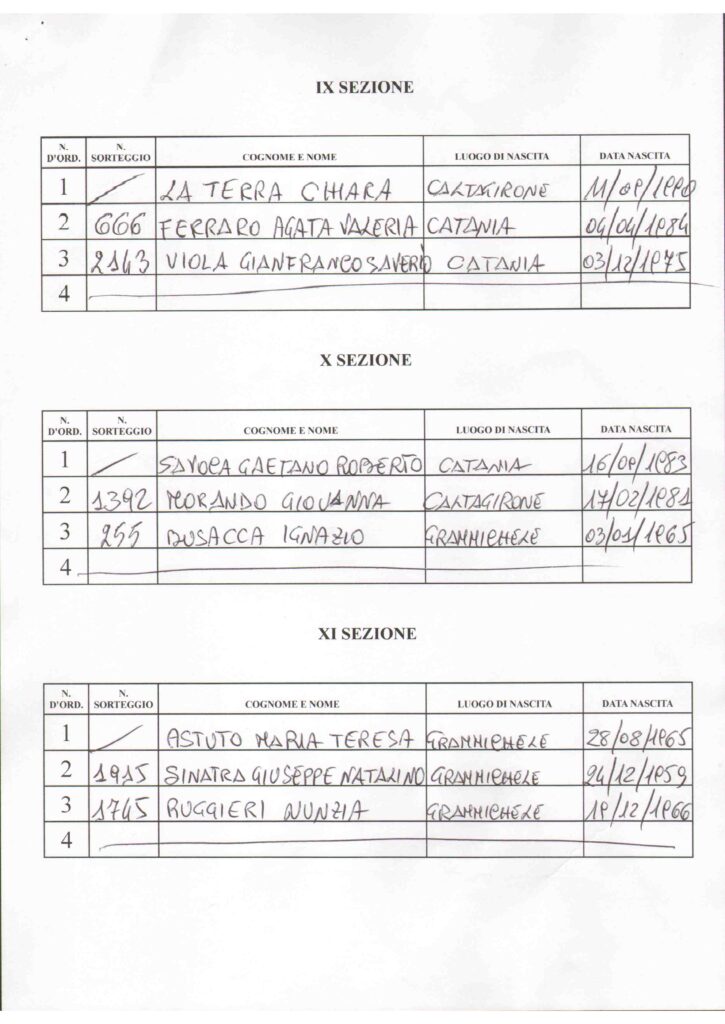 IX SEZIONE
N. D'ORD. N. SORTEGGIO COGNOME E NOME LUOGO DI NASCITA DATA NASCITA
1 LA TERRA CHIARA CALTAGIRONE 11/09/1990
2 666 FERRARO AGATA VALERIA CATANIA 04/04/1984
3 2143 VIOLA GIANFRANCO SAVERIO CATANIA 03/12/1975
4
X SEZIONE
N. D'ORD. N. SORTEGGIO COGNOME E NOME LUOGO DI NASCITA DATA NASCITA
1 SAVOCA GAETANO ROBERTO CATANIA 16/09/1983
2 1392 MORANDO GIOVANNA CALTAGIRONE 17/02/1981
3 255 BUSACCA IGNAZIO GRAMMICHELE 03/01/1965
4
XI SEZIONE
N. D'ORD. N. SORTEGGIO COGNOME E NOME LUOGO DI NASCITA DATA NASCITA
1 ASTUTO MARIA TERESA GRAMMICHELE 28/08/1965
2 1915 SINATRA GIUSEPPE NATALINO GRAMMICHELE 24/12/1959
3 1745 RUGGIERI NUNZIA GRAMMICHELE 19/12/1966
4